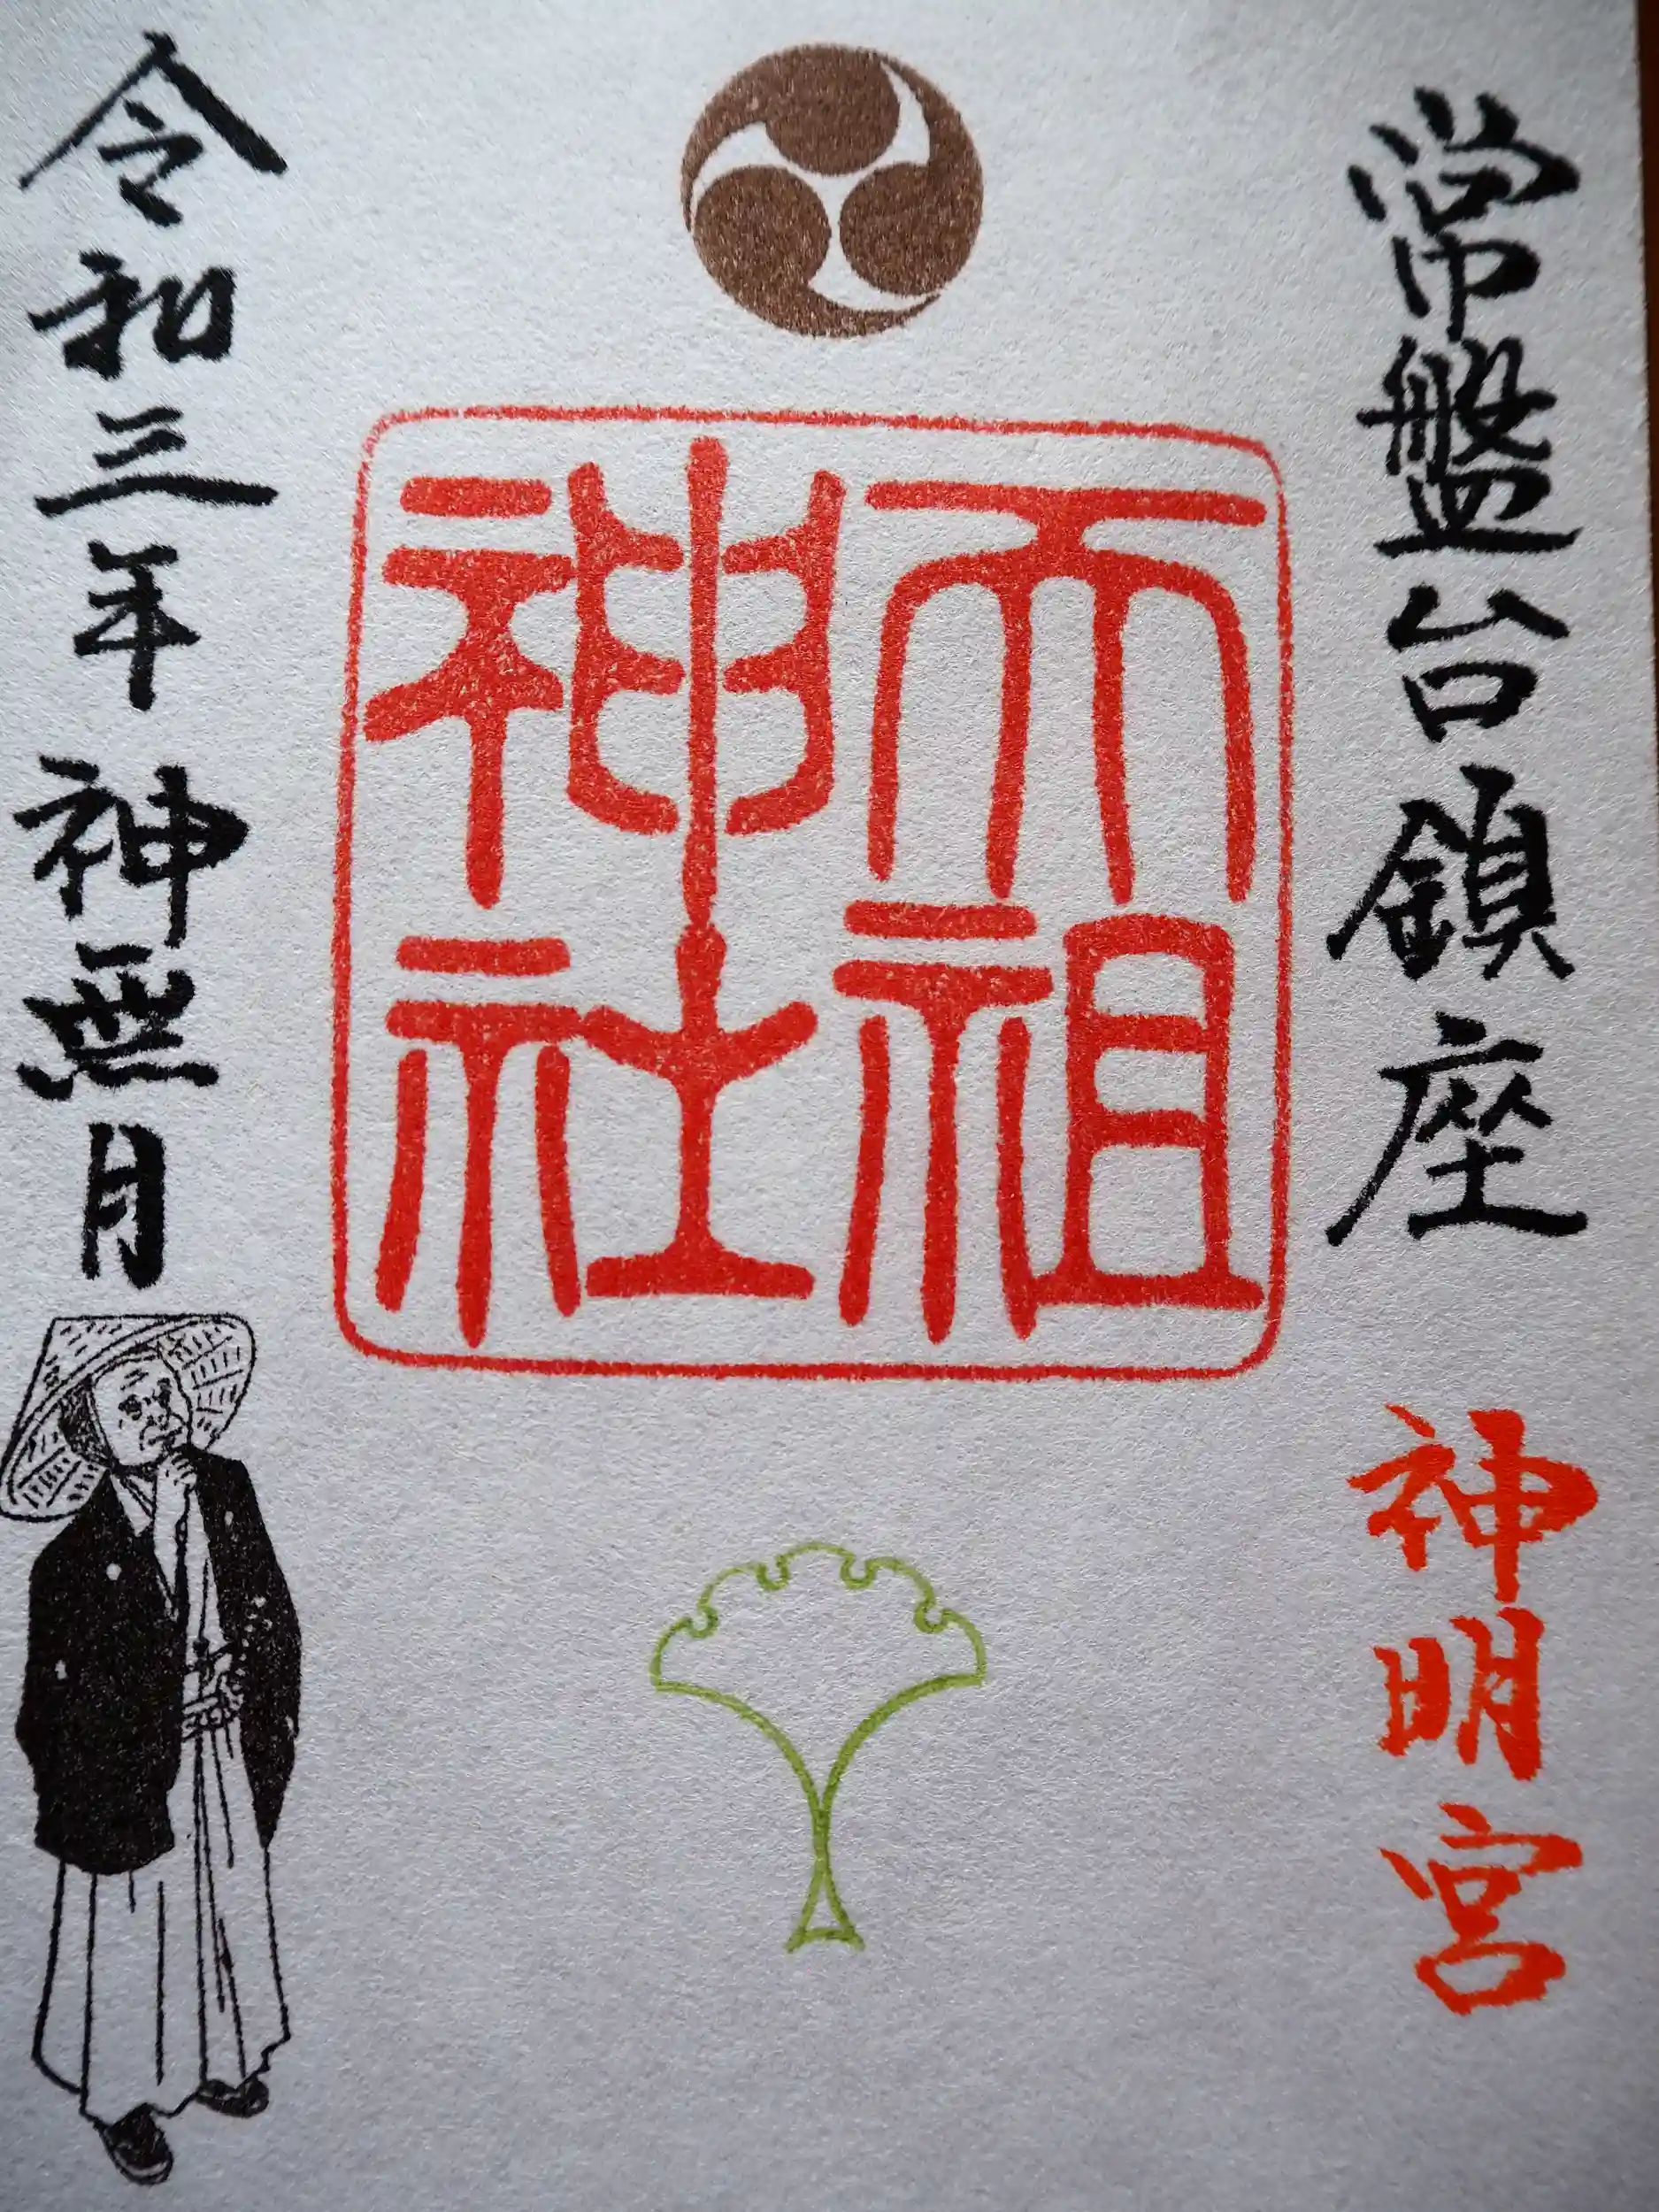 常盤台鎮座
神明宮
天祖
神社
令和三年 神無月